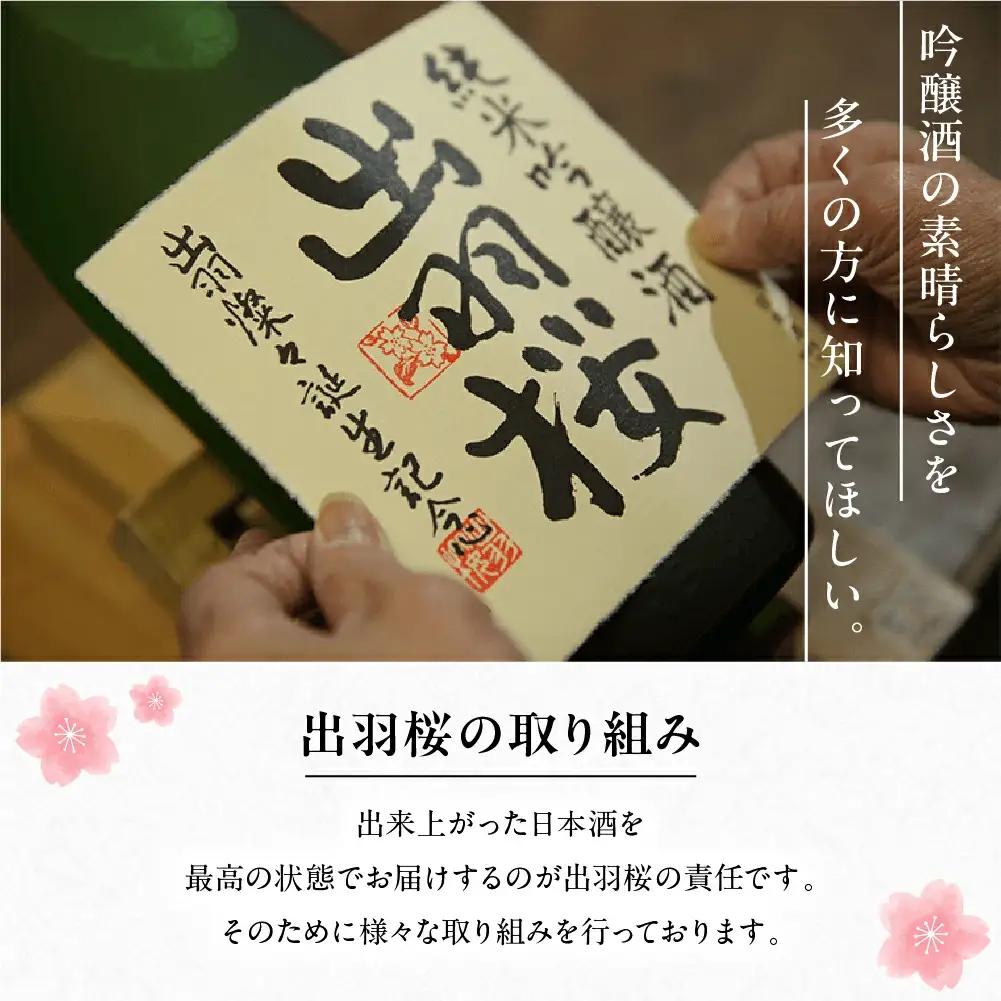 吟醸酒の素晴らしさを
多くの方に知ってほしい。
純米吟醸酒
出羽桜
出羽燦々誕生記念
出羽桜の取り組み
出来上がった日本酒を
最高の状態でお届けするのが出羽桜の責任です。
そのために様々な取り組みを行っております。